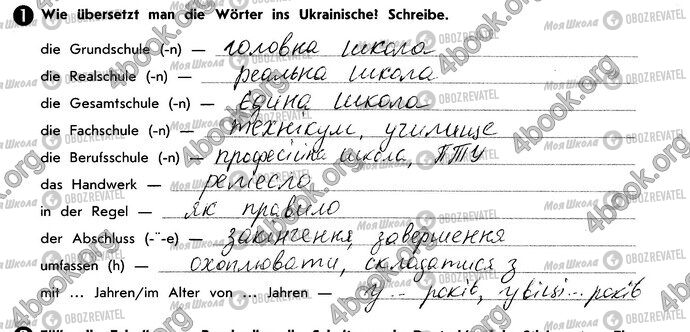 1 Wie übersetzt man die Wörter ins Ukrainische? Schreibe.
die Grundschule (-n) — головна школа
die Realschule (-n) — реальна школа
die Gesamtschule (-n) — єдина школа
die Fachschule (-n) — технікум, училище
die Berufsschule (-n) — професійна школа, ПТУ
das Handwerk — ремесло
in der Regel — як правило
der Abschluss (-¨-e) — закінчення, завершення
umfassen (h) — охоплювати, складатися з
mit ... Jahren/im Alter von ... Jahren — у ... років, у віці ... років
МояШкола OBOZREVATEL
4book.org